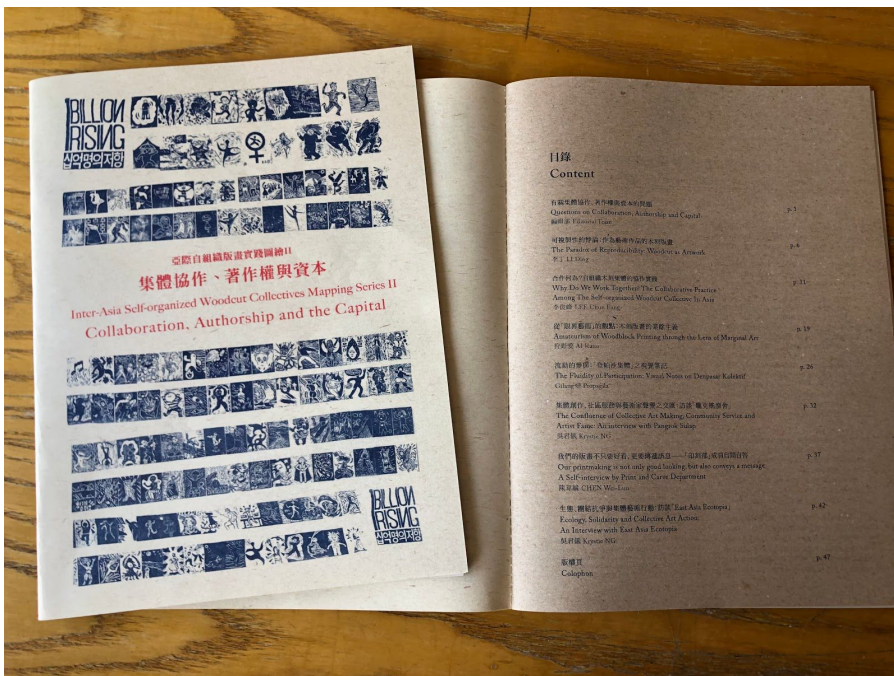 1BILLION
RISING
십억명의저항
亞際自組織版畫實踐圖繪II
集體協作、著作權與資本
Inter-Asia Self-organized Woodcut Collectives Mapping Series II
Collaboration, Authorship and the Capital
1BILLION
RISING
십억명의저항
目錄
Content
有關集體協作、著作權與資本的問題 p. 3
Questions on Collaboration, Authorship and Capital
編輯部 Editorial Team
可複製性的悖論:作為藝術作品的木刻版畫 p.6
The Paradox of Reproducibility: Woodcut as Artwork
李丁 LI Ding
合作何為?自組織木刻集體的協作實踐 p.11
Why Do We Work Together? The Collaborative Practice
Among The Self-organized Woodcut Collective In Asia
李俊峰 LEE Chun Fung
從「限界藝術」的觀點:木刻版畫的業餘主義 p. 19
Amateurism of Woodblock Printing through the Lens of Marginal Art
p. 26
The Fluidity of Participation: Visual Notes on Denpasar Kolektif
集體創作、社區服務與藝術家聲譽之交匯: p. 32
The Confluence of Collective Art Making, Community Service and
Artist Fame: An interview with Pangrok Sulap
吳君儀 Krystie NG
我們的版畫不只要好看,更要傳遞訊息——「印刻部」 p. 37
Our printmaking is not only good looking, but also conveys a message.
A Self-interview by Print and Carve Department
CHEN Wei-Lun
生態、團結抗爭與集體藝術行動:訪談「East Asia Ecotopia」 p. 42
Ecology, Solidarity and Collective Art Action:
An Interview with East Asia Ecotopia
吳君儀 Krystie NG
版權頁 p. 47
Colophon